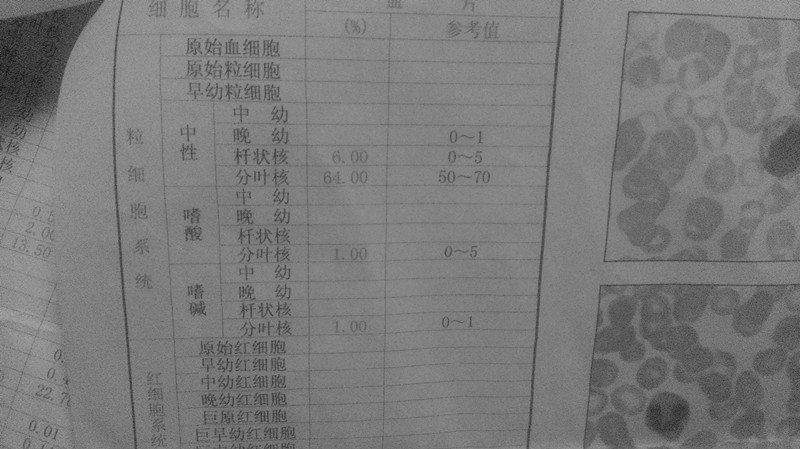 细胞名称 血 片
(%) 参考值
原始血细胞
原始粒细胞
早幼粒细胞
粒细胞系统
中性
中 幼
晚 幼 0～1
杆状核 6.00 0～5
分叶核 64.00 50～70
嗜酸
中 幼
晚 幼
杆状核
分叶核 1.00 0～5
嗜碱
中 幼
晚 幼
杆状核
分叶核 1.00 0～1
红细胞系统
原始红细胞
早幼红细胞
中幼红细胞
晚幼红细胞
巨原红细胞
巨早幼红细胞
2.00
13.50
22.70
0.01